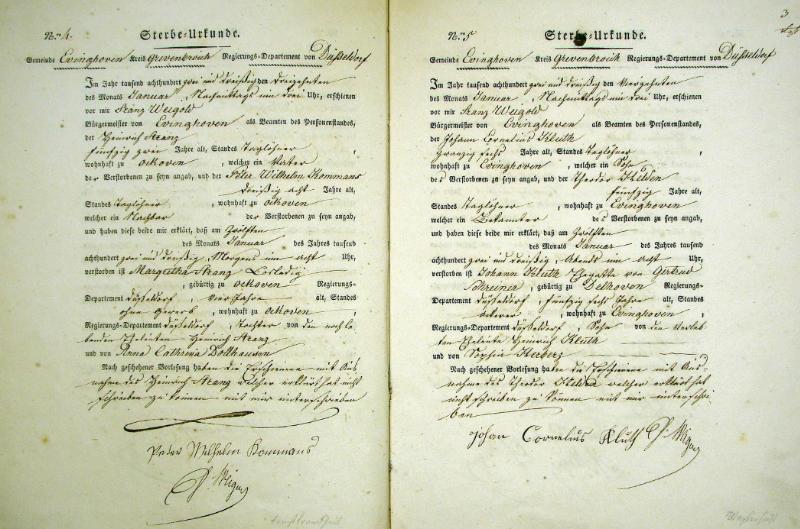 Nro. 4.
Sterbe-Urkunde.
Gemeinde Evinghoven Kreis Grevenbroich Regierungs-Departement von Düßeldorf
Im Jahr tausend achthundert zwei und dreißig den dreizehnten
des Monats Januar, Nachmittags um drei Uhr, erschienen
vor mir Franz Weigold
Bürgermeister von Evinghoven als Beamten des Personenstandes,
der Heinrich
fünfzig zwei Jahre alt, Standes Taglöhner
wohnhaft zu Ockoven, welcher ein Vater
der Verstorbenen zu seyn angab, und der Peter Wilhelm Kommans
dreißig acht Jahre alt,
Standes Taglöhner, wohnhaft zu Ockoven
welcher ein Nachbar der Verstorbenen zu seyn angab,
und haben diese beide mir erklärt, daß am zwölften
des Monats Januar des Jahres tausend
achthundert zwei und dreißig, Morgens um acht Uhr,
verstorben ist Margretha Ledig
, gebürtig zu Ockoven Regierungs-
Departement Düßeldorf, vier Jahre alt, Standes
ohne Gewerb, wohnhaft zu Ockoven,
Regierungs-Departement Düßeldorf, Tochter von den noch le-
benden Eheleuten Heinrich
und von Anna Cathrina
Nach geschehener Vorlesung haben die Zeugen mit Aus-
nahme des Heinrich welcher erklärt hat nicht
schreiben zu können mit mir unterschrieben
Peter Wilhelm Kommans
Nro. 5
Sterbe-Urkunde.
3
Gemeinde Evinghoven Kreis Grevenbroich Regierungs-Departement von Düßeldorf
Im Jahr tausend achthundert zwei und dreißig den vierzehnten
des Monats Januar, Nachmittags um drei Uhr, erschienen
vor mir Franz Weigold
Bürgermeister von Evinghoven als Beamten des Personenstandes,
der Johann Cornelius Kluth
zwanzig sechs Jahre alt, Standes Taglöhner
wohnhaft zu Evinghoven, welcher ein Sohn
des Verstorbenen zu seyn angab, und der Theodor
fünfzig Jahre alt,
Standes Taglöhner, wohnhaft zu Evinghoven
welcher ein Bekannter des Verstorbenen zu seyn angab,
und haben diese beide mir erklärt, daß am zwölften
des Monats Januar des Jahres tausend
achthundert zwei und dreißig, Abends um acht Uhr,
verstorben ist Johann Kluth Ehegatte von Gertrud
Schreiner, gebürtig zu Delhoven Regierungs-
Departement Düßeldorf, fünfzig sechs Jahre alt, Standes
Ackerer, wohnhaft zu Evinghoven
Regierungs-Departement Düßeldorf, Sohn von die verleb-
ten Eheleute Heinrich Kluth
und von Sophia
Nach geschehener Vorlesung haben die Zeugen mit Aus-
nahme des Theodor welcher erklärt hat
nicht schreiben zu können mit mir unterschrie-
ben
Johan Cornelius Kluth